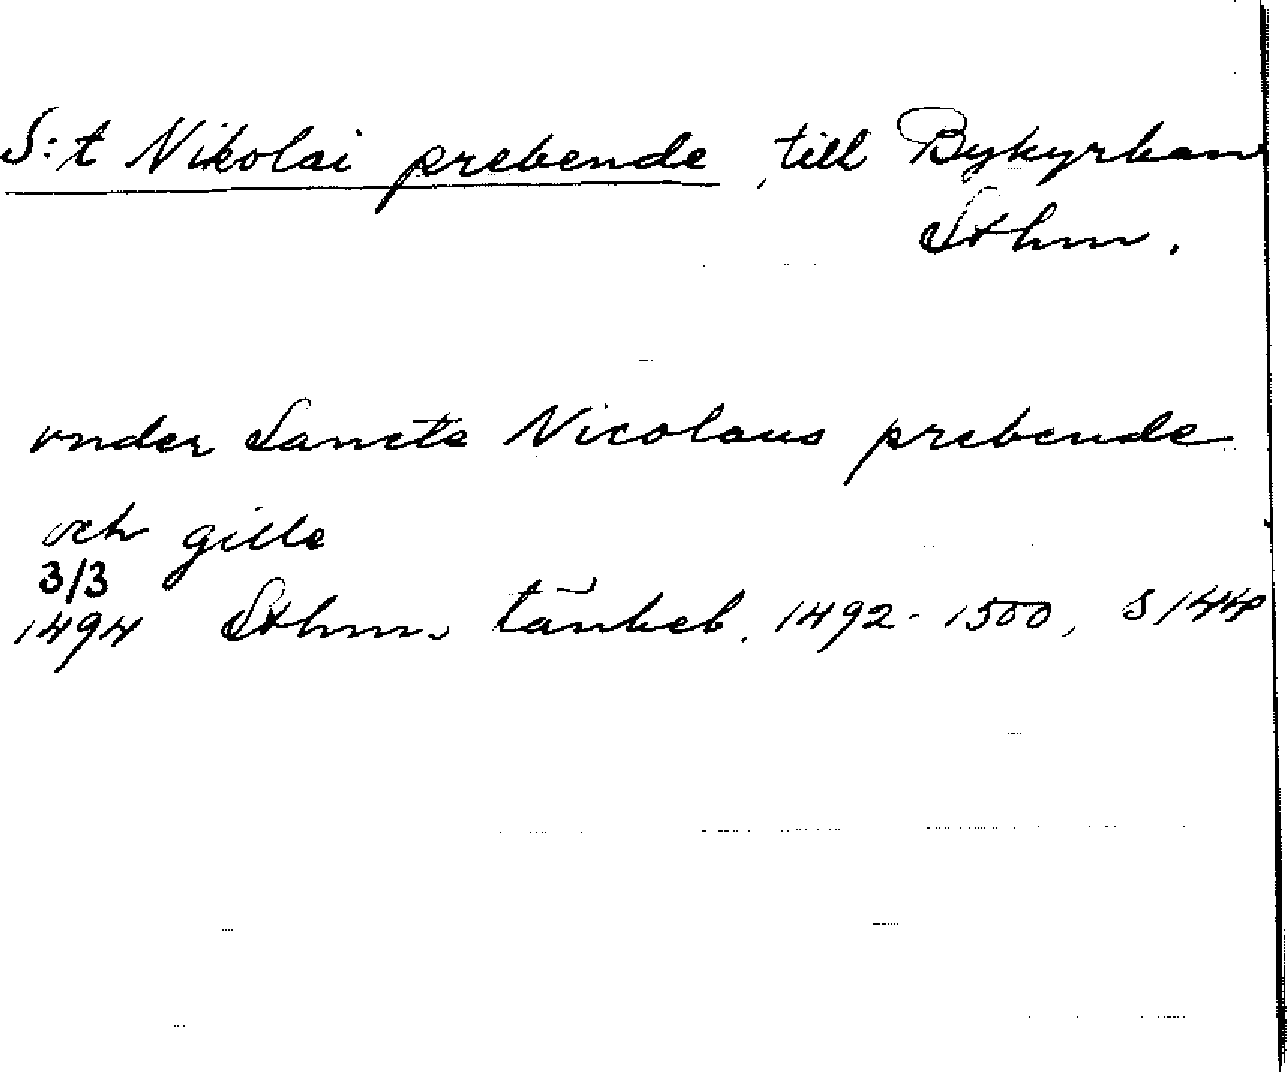 S:t Nikolai prebende, till Bykyrkan
Sthm.
vnder Sancte Nicolaus prebende
och gille
3/3
1494 Sthm. tänkeb. 1492-1500, s 144